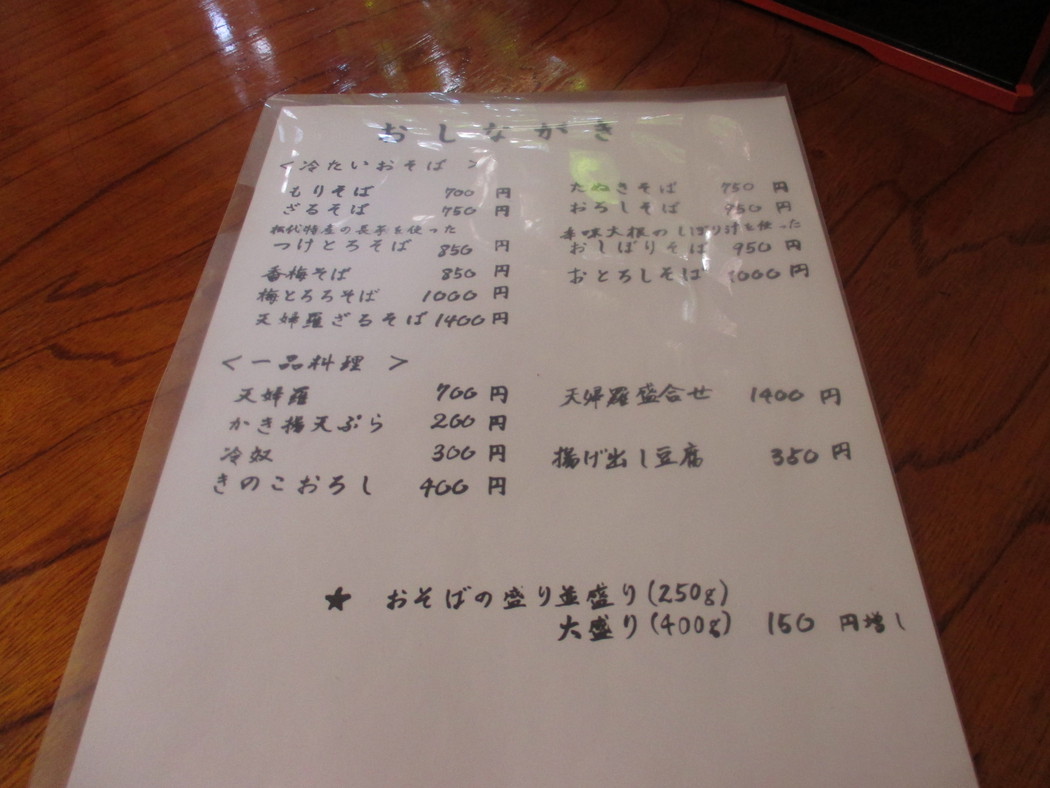 おしながき
<冷たいおそば>
もりそば 700 円
ざるそば 750 円
松代特産の長芋を使った
つけとろそば 850 円
香梅そば 850 円
梅とろろそば 1000 円
天婦羅ざるそば 1400 円
たぬきそば 750 円
おろしそば 950 円
辛味大根のしぼり汁を使った
おしぼりそば 950 円
おとろしそば 1000 円
<一品料理>
天婦羅 700 円
かき揚天ぷら 200 円
冷奴 300 円
きのこおろし 400 円
天婦羅盛合せ 1400 円
揚げ出し豆腐 350 円
★ おそばの盛り並盛り(250g)
大盛り(400g) 150 円増し